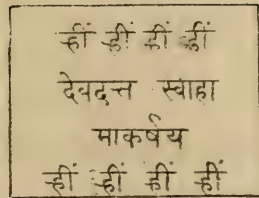 ह्रीं ह्रीं ह्रीं ह्रीं
देवदत्त स्वाहा
माकर्षय
ह्रीं ह्रीं ह्रीं ह्रीं